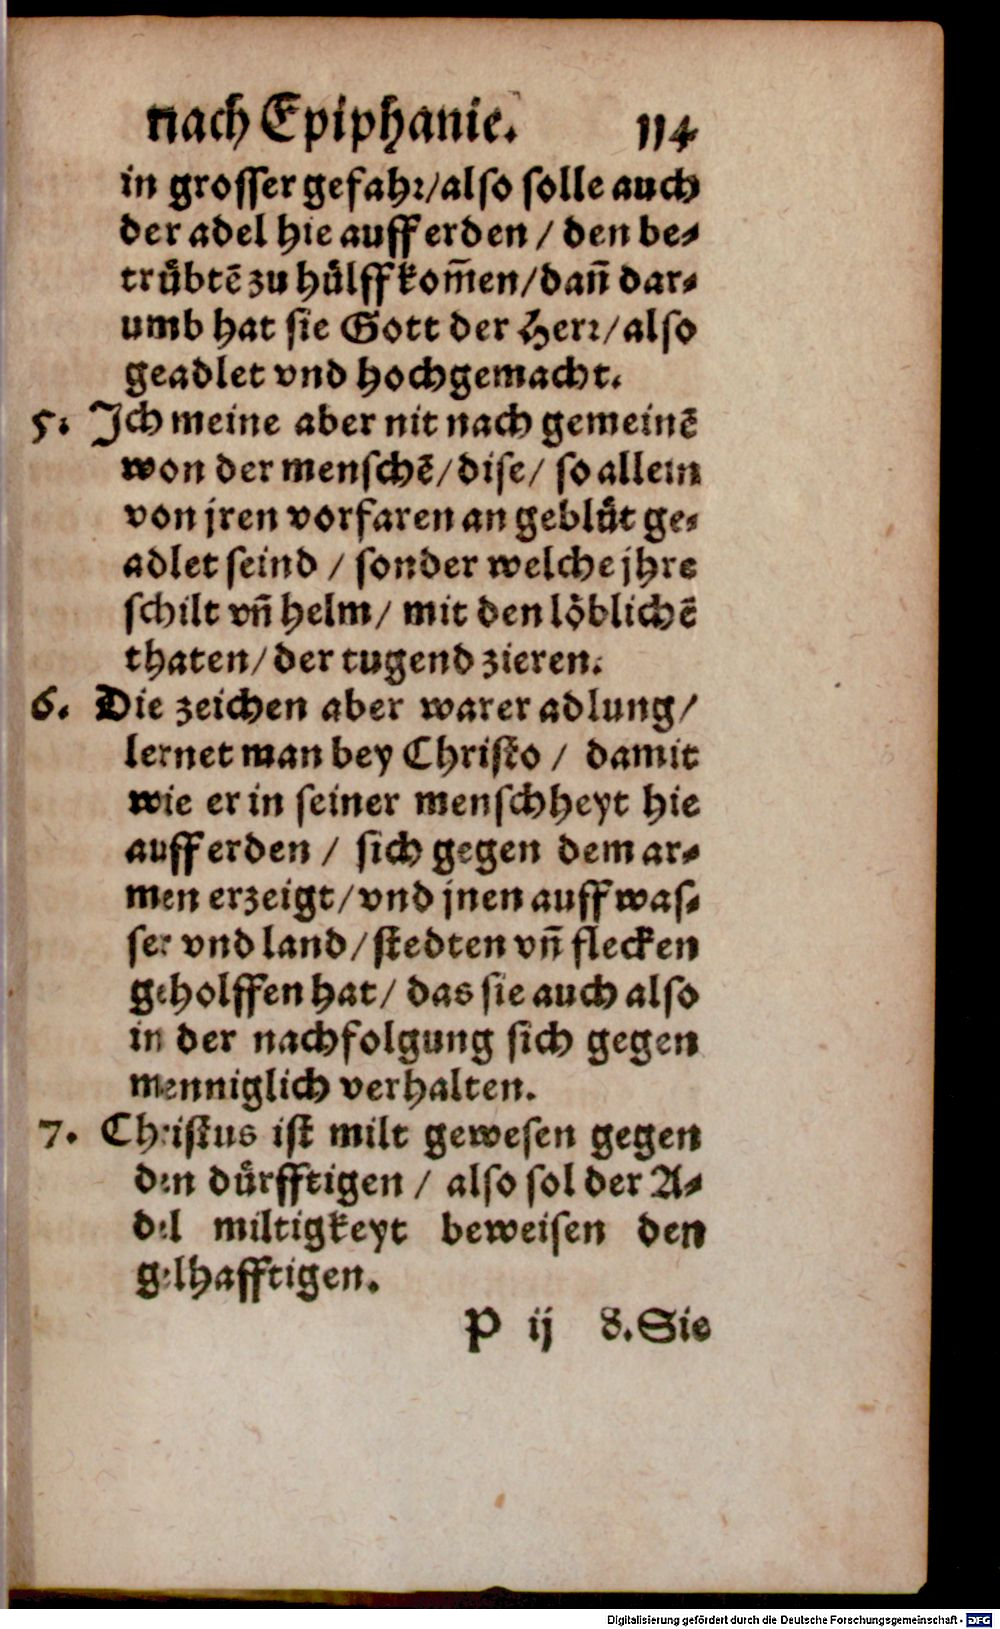 nach Epiphanie. 114
in grosser gefahr/also solle auch
der adel hie auff erden / den be-
trübtē zu hülff kom̄en/dan̄ dar-
umb hat sie Gott der Herr/also
geadlet vnd hochgemacht.
5. Ich meine aber nit nach gemeinē
won der menschē/dise/ so allein
von jren vorfaren an geblüt ge-
adlet seind / sonder welche jhre
schilt vn̄ helm/ mit den löblichē
thaten/der tugend zieren.
6. Die zeichen aber warer adlung/
lernet man bey Christo / damit
wie er in seiner menschheyt hie
auff erden / sich gegen dem ar-
men erzeigt/vnd jnen auff was-
ser vnd land/stedten vn̄ flecken
geholffen hat/ das sie auch also
in der nachfolgung sich gegen
menniglich verhalten.
7. Christus ist milt gewesen gegen
den dürfftigen / also sol der A-
del miltigkeyt beweisen den
gelhafftigen.
P ij 8. Sie
Digitalisierung gefördert durch die Deutsche Forschungsgemeinschaft - DFG